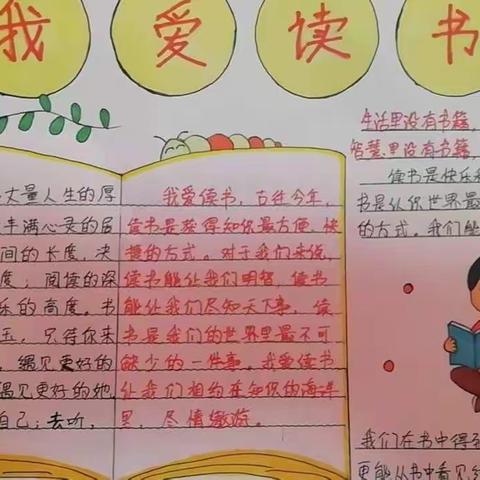 我爱读书
丈量人生的厚
丰满心灵的届
间的长度，决
度；阅读的深
乐的高度。书
玉，只待你来
，遇见更好的
遇见更好的她
自己；去听，
我爱读书，古往今年，
读书是获得知识最方便、快
捷的方式。对于我们来说，
读书能让我们明智，读书
能让我们尽知天下事，读
书是我们的世界里最不可
缺少的一件事。我爱读书
让我们相约在知识的海洋
里，尽情傲游。
生活里没有书籍，
智慧里没有书籍，
读书是快乐
书是认你世界最
的方式。我们能
我们在书中得到
更能从书中看见